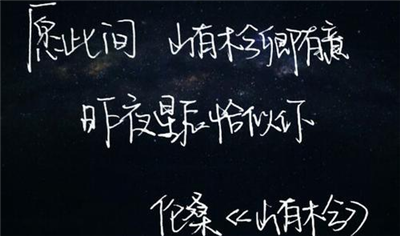 愿此间 山有木兮卿有意
昨夜星辰恰似你
伦桑《山有木兮》